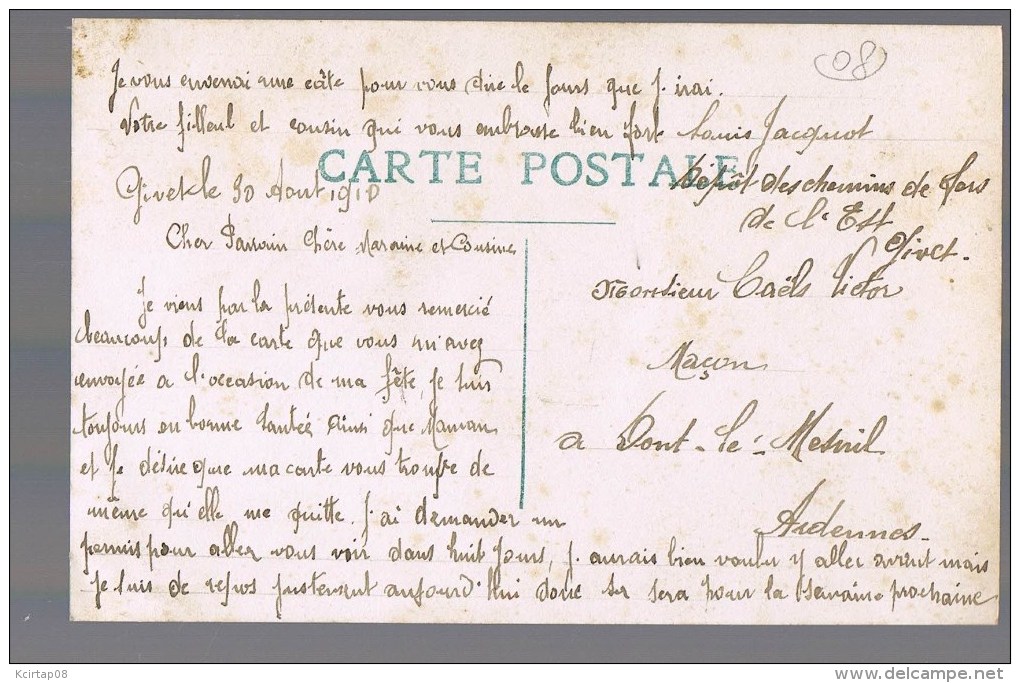 08
Je vous enverrai une câte pour vous dire le Jours que J. irai.
Votre filleul et cousin qui vous embrasse bien fort Louis Jacquot
CARTE POSTALE
Dépôt des chemins de fers
de l'Est
Givet.
Givet le 30 Aout 1910
Cher Parrain Chère Marraine et Cousine
Je viens par la présente vous remercié
beaucoup de la carte que vous m'avez
envoyée a l'occasion de ma fête, je suis
toujours en bonne santée ainsi que Maman
et je désire que ma carte vous trouve de
même qu'elle me quitte. J'ai demander un
permis pour aller vous voir dans huit Jours, J. aurais bien voulu y aller avant mais
je suis de repos justement aujourd'hui donc se sera pour la semaine prochaine
Monsieur Caëls Victor
Maçon
a Dom-le-Mesnil
Ardennes.
Kcirtap08
www.delcampe.net